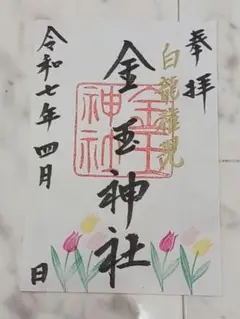 奉拝
白龍権現
金玉神社
金玉神社
令和七年四月
日